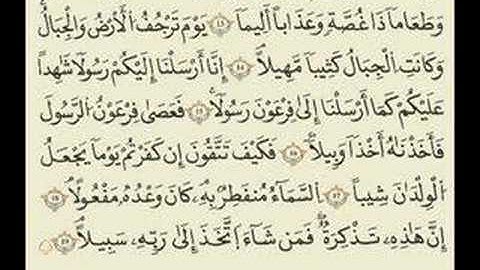 وَطَعَامًا ذَا غُصَّةٍ وَعَذَابًا أَلِيمًا ۝ يَوْمَ تَرْجُفُ الْأَرْضُ وَالْجِبَالُ
وَكَانَتِ الْجِبَالُ كَثِيبًا مَّهِيلًا ۝ إِنَّا أَرْسَلْنَا إِلَيْكُمْ رَسُولًا شَاهِدًا
عَلَيْكُمْ كَمَا أَرْسَلْنَا إِلَىٰ فِرْعَوْنَ رَسُولًا ۝ فَعَصَىٰ فِرْعَوْنُ الرَّسُولَ
فَأَخَذْنَاهُ أَخْذًا وَبِيلًا ۝ فَكَيْفَ تَتَّقُونَ إِن كَفَرْتُمْ يَوْمًا يَجْعَلُ
الْوِلْدَانَ شِيبًا ۝ السَّمَاءُ مُنفَطِرٌ بِهِ ۚ كَانَ وَعْدُهُ مَفْعُولًا ۝
إِنَّ هَٰذِهِ تَذْكِرَةٌ ۖ فَمَن شَاءَ اتَّخَذَ إِلَىٰ رَبِّهِ سَبِيلًا ۝